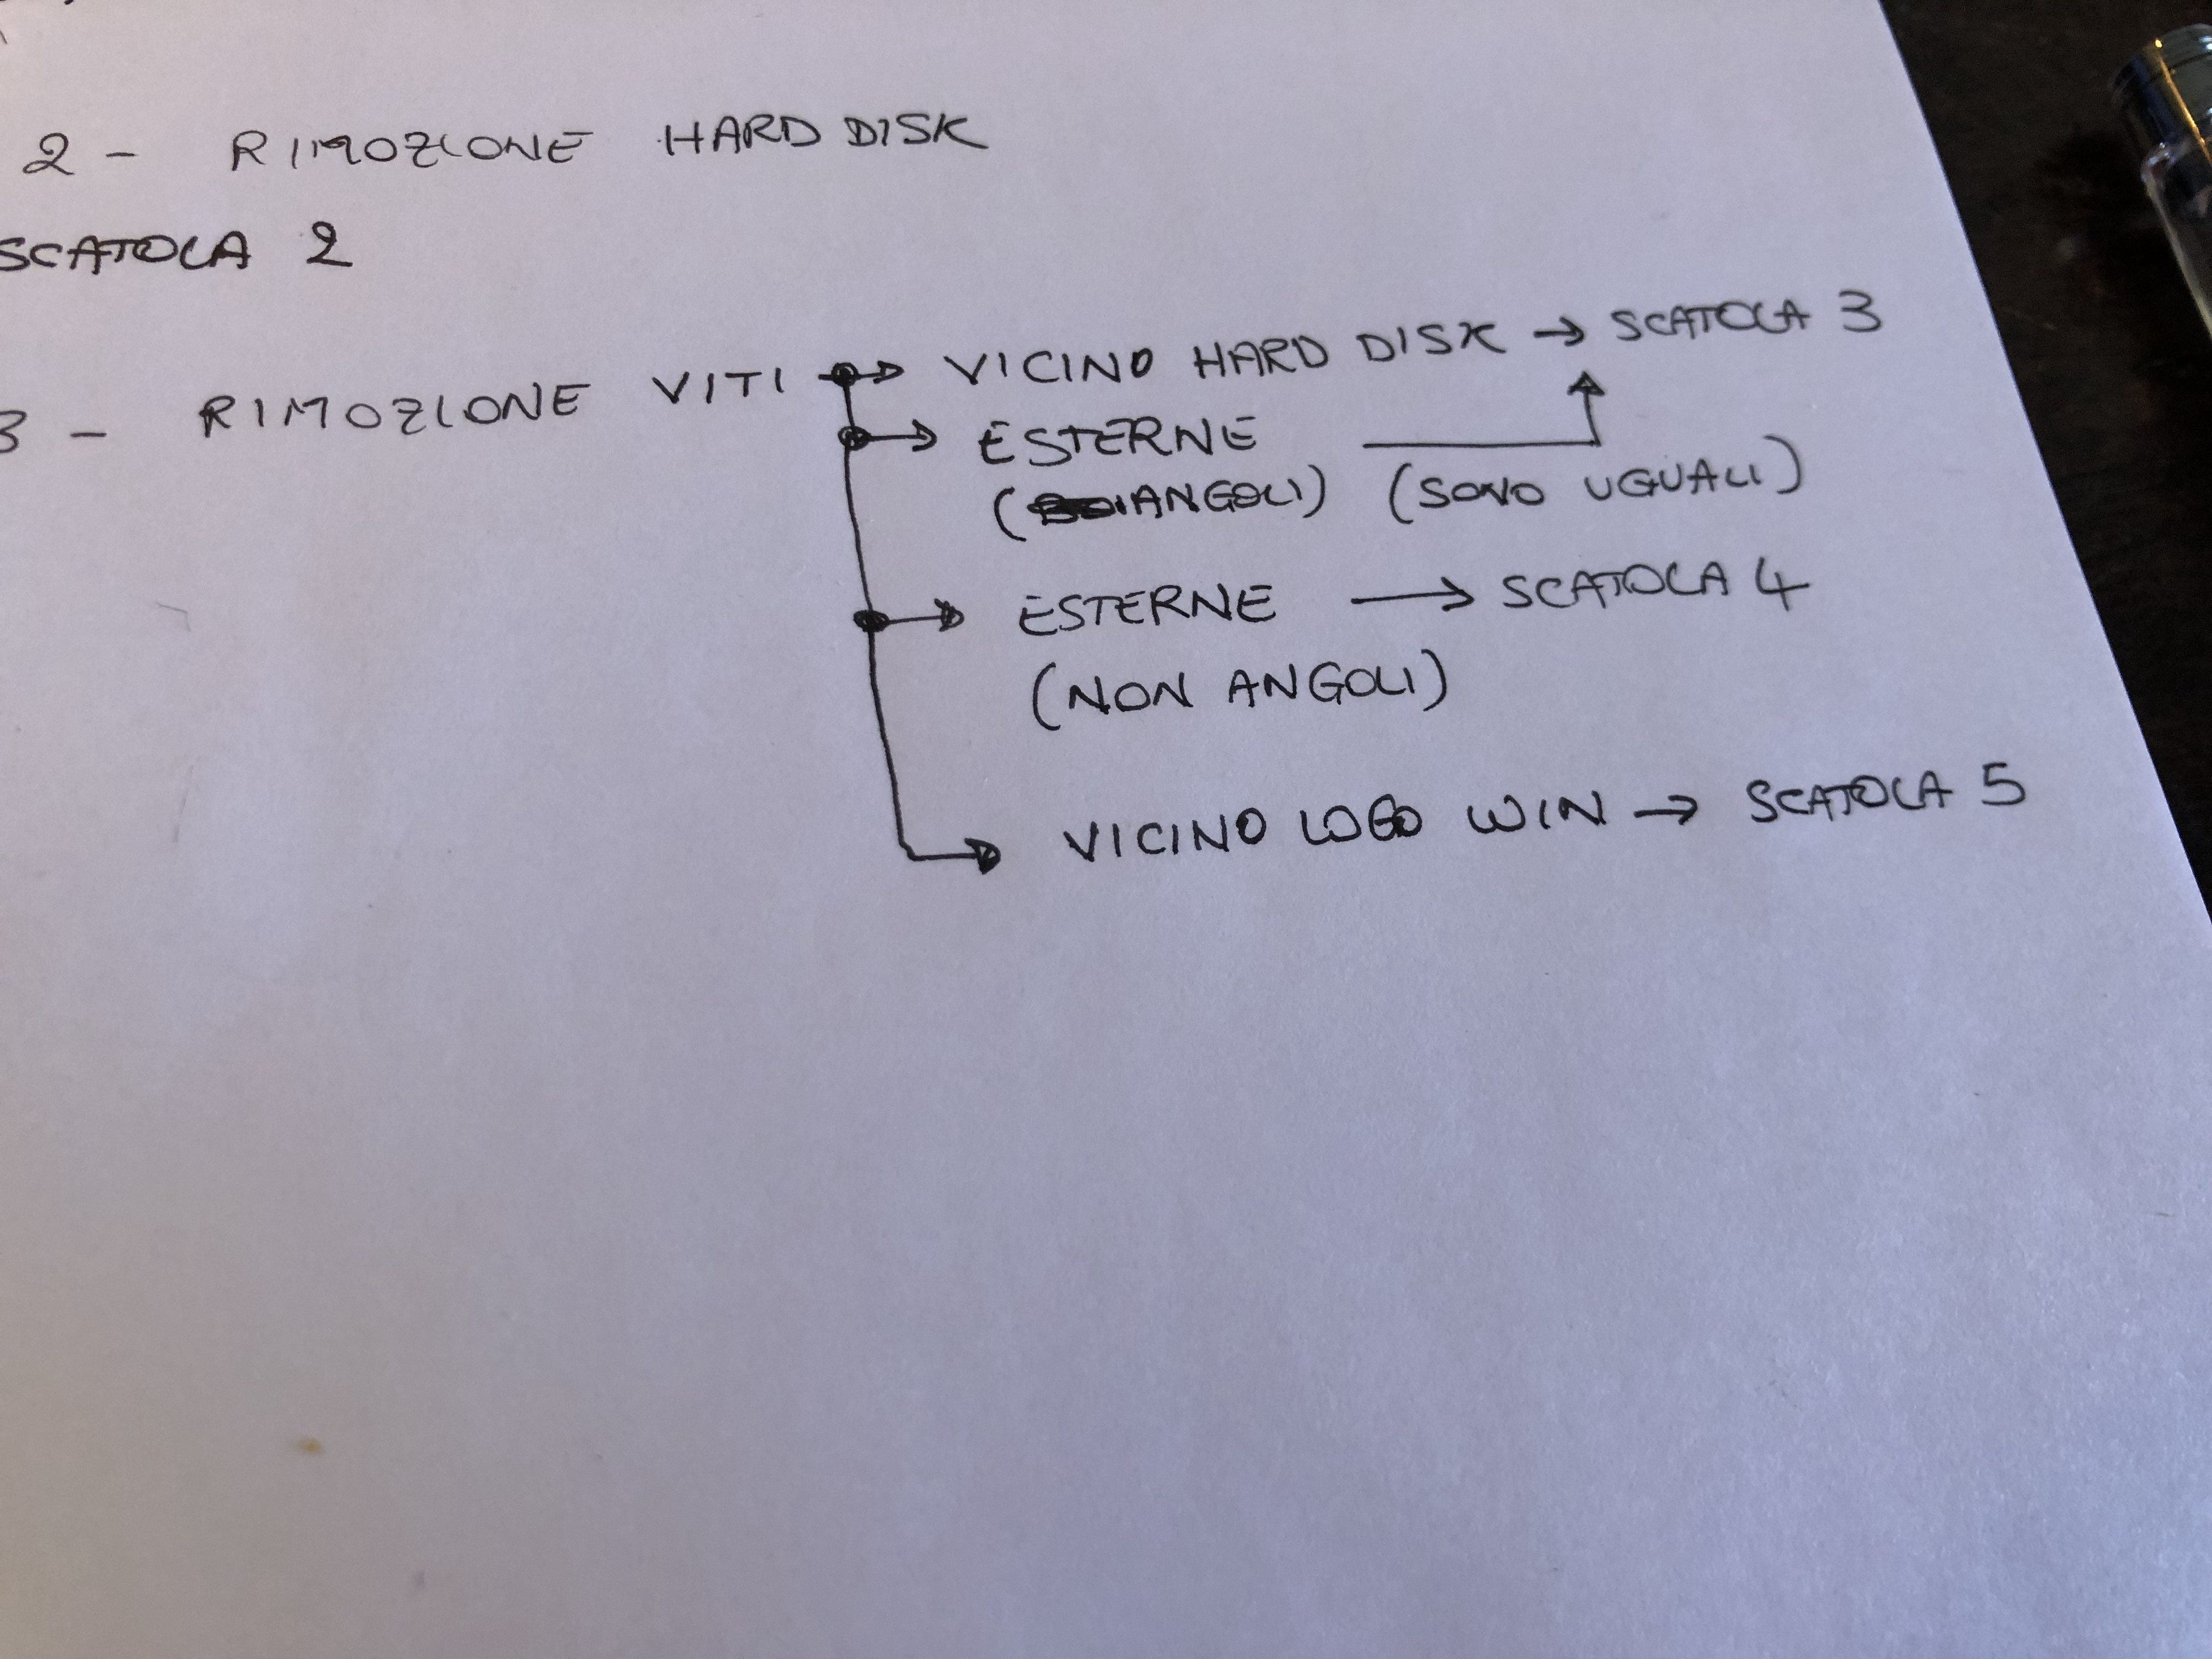 2 - RIMOZIONE HARD DISK
SCATOLA 2
3 - RIMOZIONE VITI → VICINO HARD DISK → SCATOLA 3
→ ESTERNE
(ANGOLI) (SONO UGUALI)
→ ESTERNE → SCATOLA 4
(NON ANGOLI)
→ VICINO LOGO WIN → SCATOLA 5